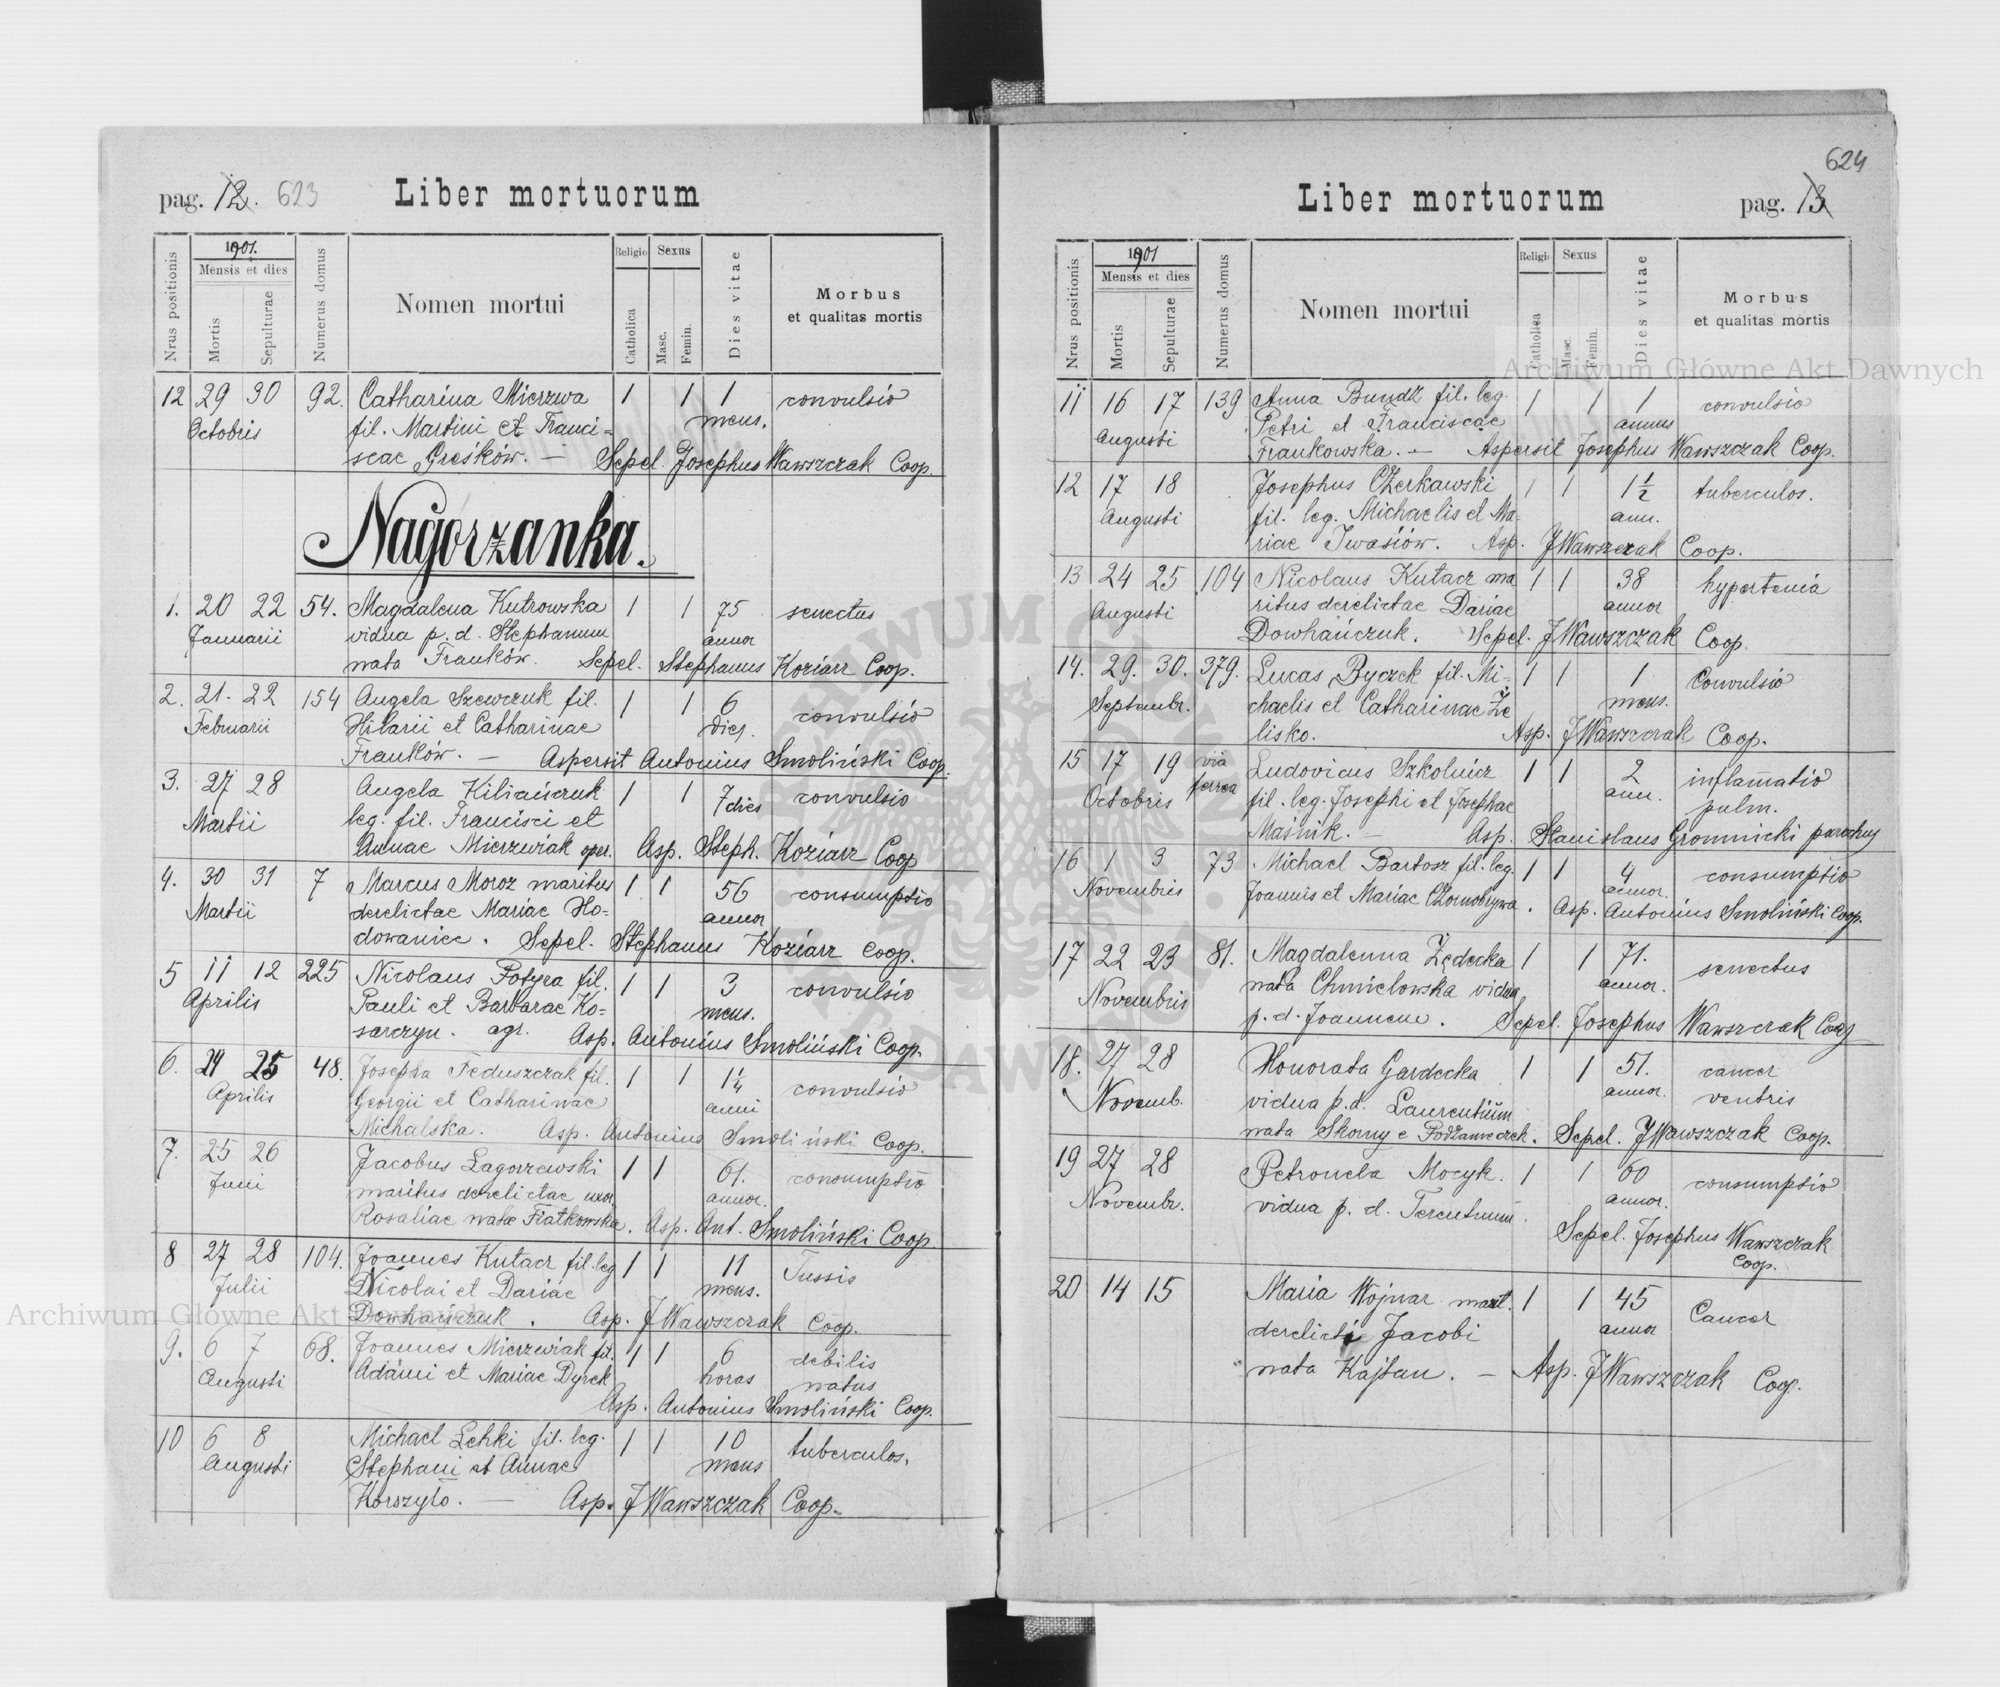 pag. 12. 623 Liber mortuorum
Nrus positionis
1901.
Mensis et dies
Mortis
Sepulturae
Numerus domus
Nomen mortui
Religio
Catholica
Sexus
Masc.
Femin.
Dies vitae
Morbus
et qualitas mortis
12 29 30 92. Catharina Mierzwa 1 1 1 convulsio
Octobris fil. Martini et Franci= mens.
scae Greśków. — Sepel. Josephus Wawszczak Coop.
Nagorzanka.
1. 20 22 54. Magdalena Kutrowska 1 1 75 senectus
Januarii vidua p. d. Stephanum annor
nata Franków. Sepel. Stephanus Koziarz Coop.
2. 21. 22 154 Angela Szewczuk fil. 1 1 6 convulsio
Februarii Hilarii et Catharinae dies.
Franków. — Aspersit Antonius Smoliński Coop.
3. 27 28 Angela Kiliańczuk 1 1 7 dies convulsio
Martii leg. fil. Francisci et
Annae Mierzwiak oper. Asp. Steph. Koziarz Coop
4. 30 31 7 Marcus Moroz maritus 1 1 56 consumptio
Martii derelictae Mariae Ho- annor
dowaniec. Sepel. Stephanus Koziarz Coop.
5 11 12 225 Nicolaus Potyra fil. 1 1 3 convulsio
Aprilis Pauli et Barbarae Ko- mens.
sarczyn. agr. Asp. Antonius Smoliński Coop.
6. 24 25 48. Josepha Feduszczak fil. 1 1 1¼ convulsio
Aprilis Georgii et Catharinae anni
Michalska. Asp. Antonius Smoliński Coop.
7. 25 26 Jacobus Lagorzewski 1 1 61. consumptio
Juni maritus derelictae uxor. annor.
Rosaliae natae Fiatkowska. Asp. Ant. Smoliński Coop.
8 27 28 104. Joannes Kutacz fil. leg 1 1 11 Tussis
Julii Nicolai et Dariae mens.
Dowhańczuk. Asp. J Wawszczak Coop.
9. 6 7 68. Joannes Mierzwiak fil. 1 1 6 debilis
Augusti Adami et Mariae Dyrek horas natus
Asp. Antonius Smoliński Coop.
10 6 8 Michael Lehki fil. leg. 1 1 10 tuberculos.
Augusti Stephani et Annae mens
Korszyło. — Asp. J Wawszczak Coop.
624
Liber mortuorum pag. 13
Nrus positionis
1901
Mensis et dies
Mortis
Sepulturae
Numerus domus
Nomen mortui
Religio
Catholica
Sexus
Masc.
Femin.
Dies vitae
Morbus
et qualitas mortis
11 16 17 139 Anna Bundz fil. leg. 1 1 1 convulsio
Augusti Petri et Franciscae annus
Frankowska. — Aspersit Josephus Wawszczak Coop.
12 17 18 Josephus Czerkawski 1 1 1½ tuberculos.
Augusti fil. leg. Michaelis et Ma- ann.
riae Iwasiów. Asp. J Wawszczak Coop.
13 24 25 104 Nicolaus Kutacz ma 1 1 38 hypertenia
Augusti ritus derelictae Dariae annor
Dowhańczuk. Sepel. J Wawszczak Coop.
14. 29. 30. 379. Lucas Byczek fil. Mi- 1 1 1 Convulsio
Septembr. chaelis et Catharinae Że mens.
lisko. Asp. J Wawszczak Coop.
15 17 19 via Ludovicus Szkolnicz 1 1 2 inflamatio
Octobris ferrea fil. leg. Josephi et Josephae ann. pulm.
Maśnik. — Asp. Stanislaus Gromnicki parochus
16 1 3 73 Michael Bartosz fil. leg. 1 1 4 consumptio
Novembris Joannis et Mariae Czornobrywa. annor.
Asp. Antonius Smoliński Coop.
17 22 23 81. Magdalenna Zędecka 1 1 71. senectus
Novembris nata Chmielowska vidua annor.
p. d. Joannem. Sepel. Josephus Wawszczak Coop
18. 27 28 Honorata Gardecka 1 1 51. cancer
Novemb. vidua p. d. Laurentium annor. ventris
nata Skorny e Podzameczek. Sepel. J Wawszczak Coop.
19 27 28 Petronela Mocyk. 1 1 60 consumptio
Novembr. vidua p. d. Terentium. annor.
Sepel. Josephus Wawszczak
Coop.
20 14 15 Maria Wojnar 1 1 45 Cancer
Jacobi annor
nata Kajtan. — Asp. J Wawszczak Coop.
Archiwum Główne Akt Dawnych
Archiwum Główne Akt Dawnych